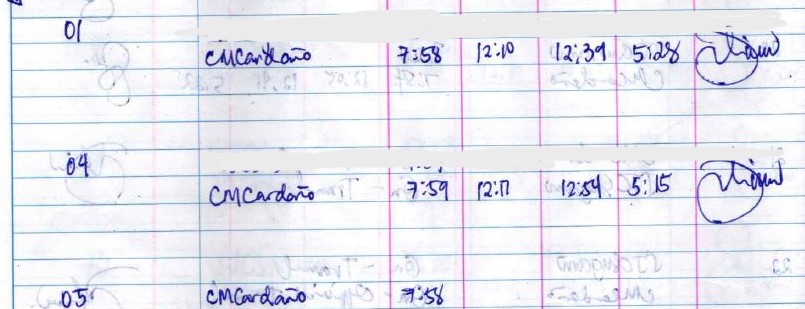 01
CMCardaño 7:58 12:10 12:39 5:28
04
CMCardaño 7:59 12:11 12:54 5:15
05
CMCardaño 7:58